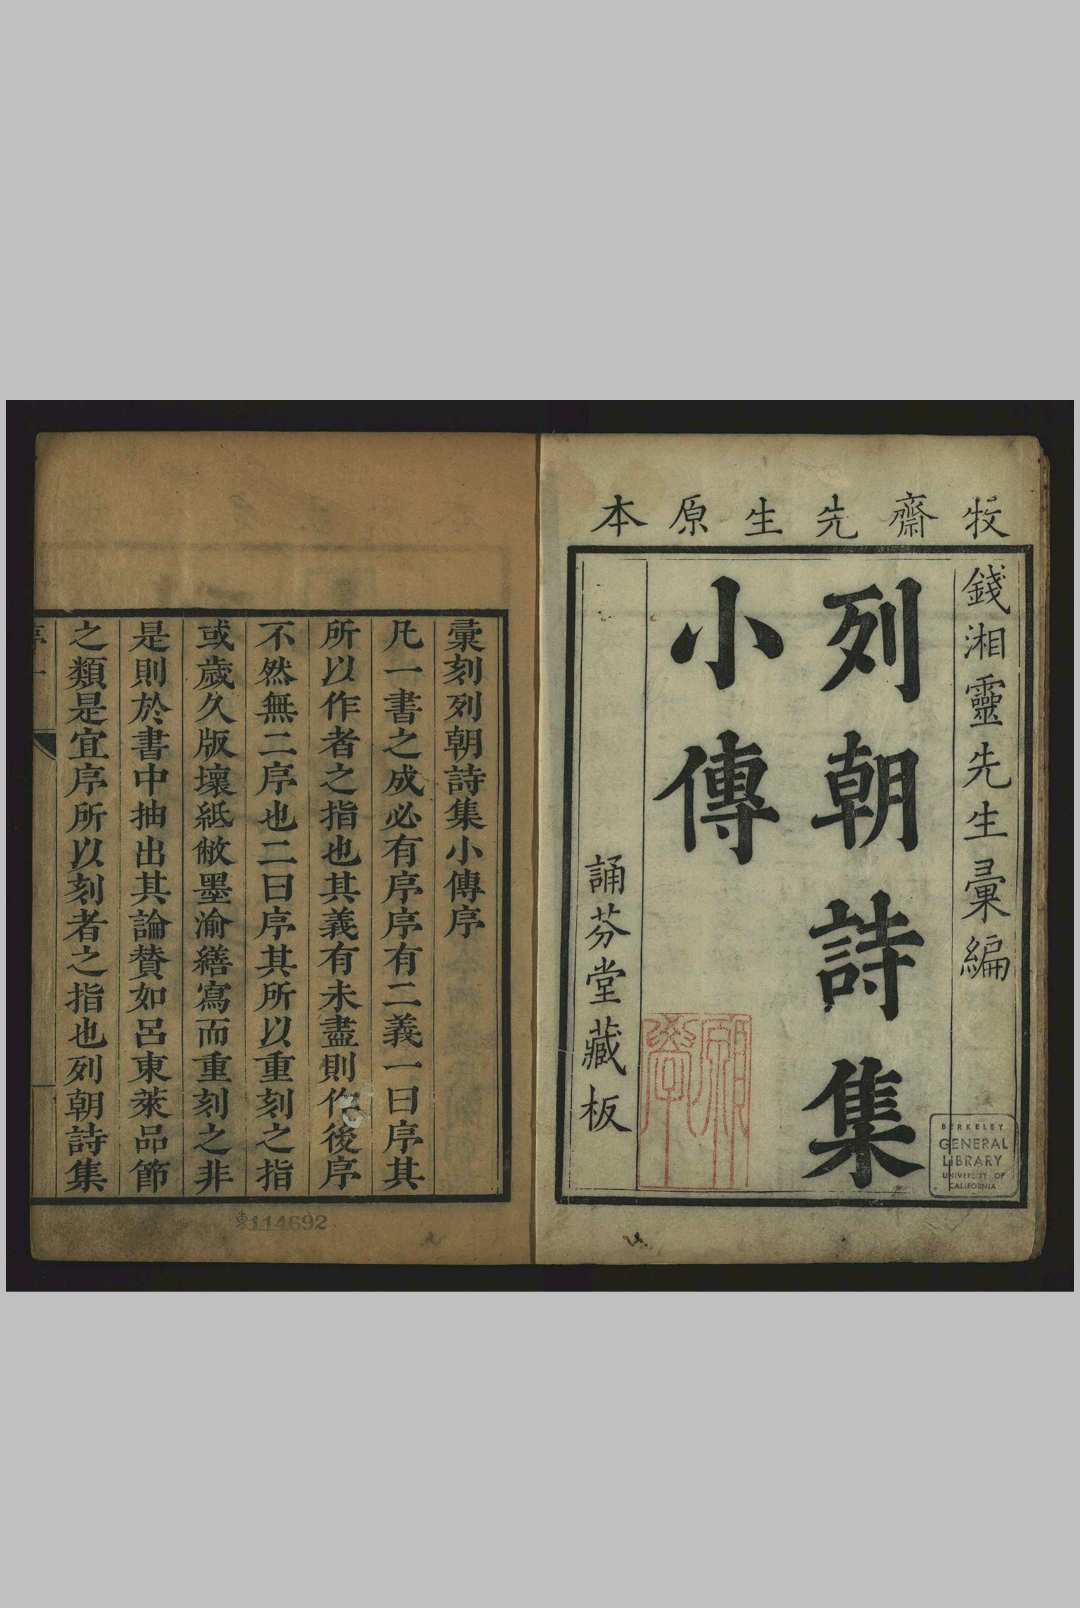 牧齋先生原本
錢湘靈先生彙編
列朝詩集
小傳
誦芬堂藏板
BERKELEY
GENERAL
LIBRARY
UNIVERSITY OF
CALIFORNIA
彙刻列朝詩集小傳序
凡一書之成必有序序有二義一曰序其
所以作者之指也其義有未盡則作後序
不然無二序也二曰序其所以重刻之指
或歲久版壞紙敝墨渝繕寫而重刻之非
是則於書中抽出其論賛如呂東萊品節
之類是宜序所以刻者之指也列朝詩集
序一
東114692